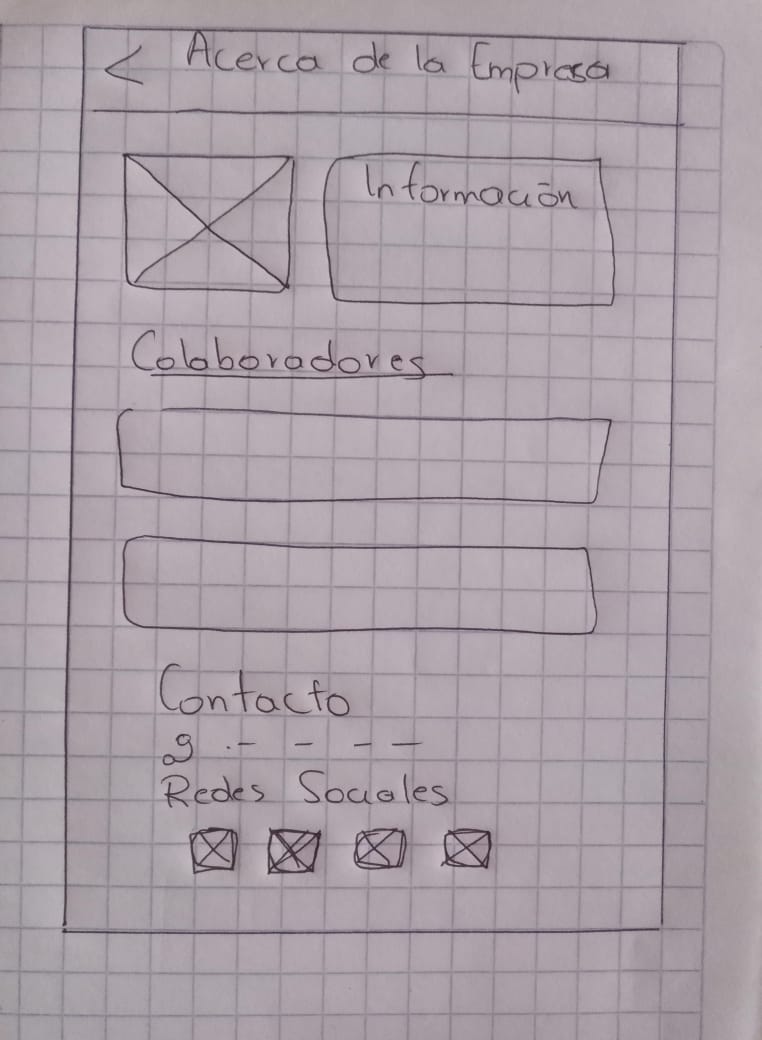 < Acerca de la Empresa
Información
Colaboradores
Contacto
9 - - - -
Redes Sociales